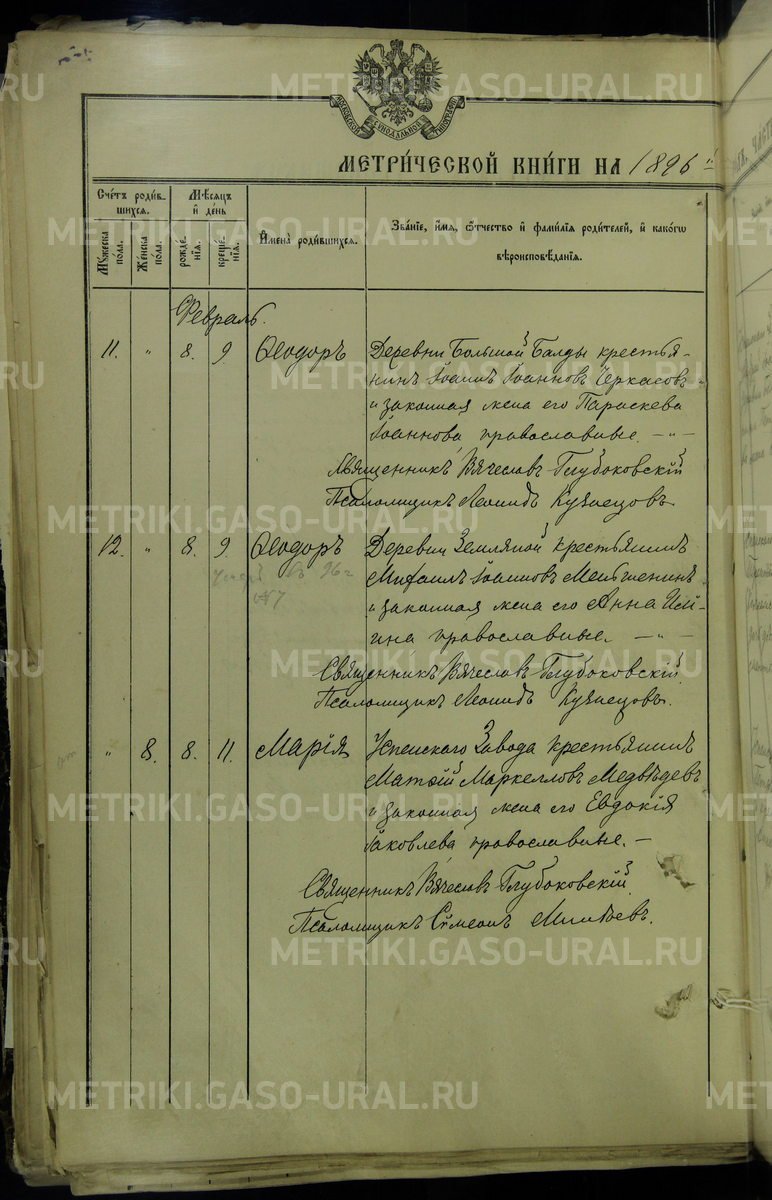 МОСКОВСКОЙ СѴНОДАЛЬНОЙ ТИПОГРАФІИ
МЕТРИ́ЧЕСКОЙ КНИ́ГИ НА 1896
Сче́тъ роди́в-
шихся.
Мꙋжеска по́ла.
Же́нска по́ла.
Мѣ́сяцъ
и де́нь
рожде́-нїя.
креще́-нїя.
Имена̀ роди́вшихся.
Зва́нїе, и́мя, ѻ́тчество и фами́лїя роди́телей, и како́гѡ
вѣроисповѣ́данїя.
Февраль.
11. " 8. 9 Ѳеодоръ Деревни Большой Балды крестья-
нинъ Іоаннъ Іоанновъ Черкасовъ
и законная жена его Параскева
Іоаннова, православные. — " —
Священникъ Вячеславъ Глубоковскій
Псаломщикъ Леонидъ Кузнецовъ
12. " 8. 9. Ѳеодоръ Деревни Земляной крестьянинъ
Михаилъ Іоанновъ Меньшенинъ
и законная жена его Анна Иль-
ина православные. — " —
Умеръ 96 г
№ 7
Священникъ Вячеславъ Глубоковскій
Псаломщикъ Леонидъ Кузнецовъ.
" 8. 8. 11. Марія Успенскаго Завода крестьянинъ
Матѳій Маркелловъ Медвѣдевъ
и законная жена его Евдокія
Іаковлева православные. —
Священникъ Вячеславъ Глубоковскій
Псаломщикъ Сѵмеонъ
METRIKI.GASO-URAL.RU